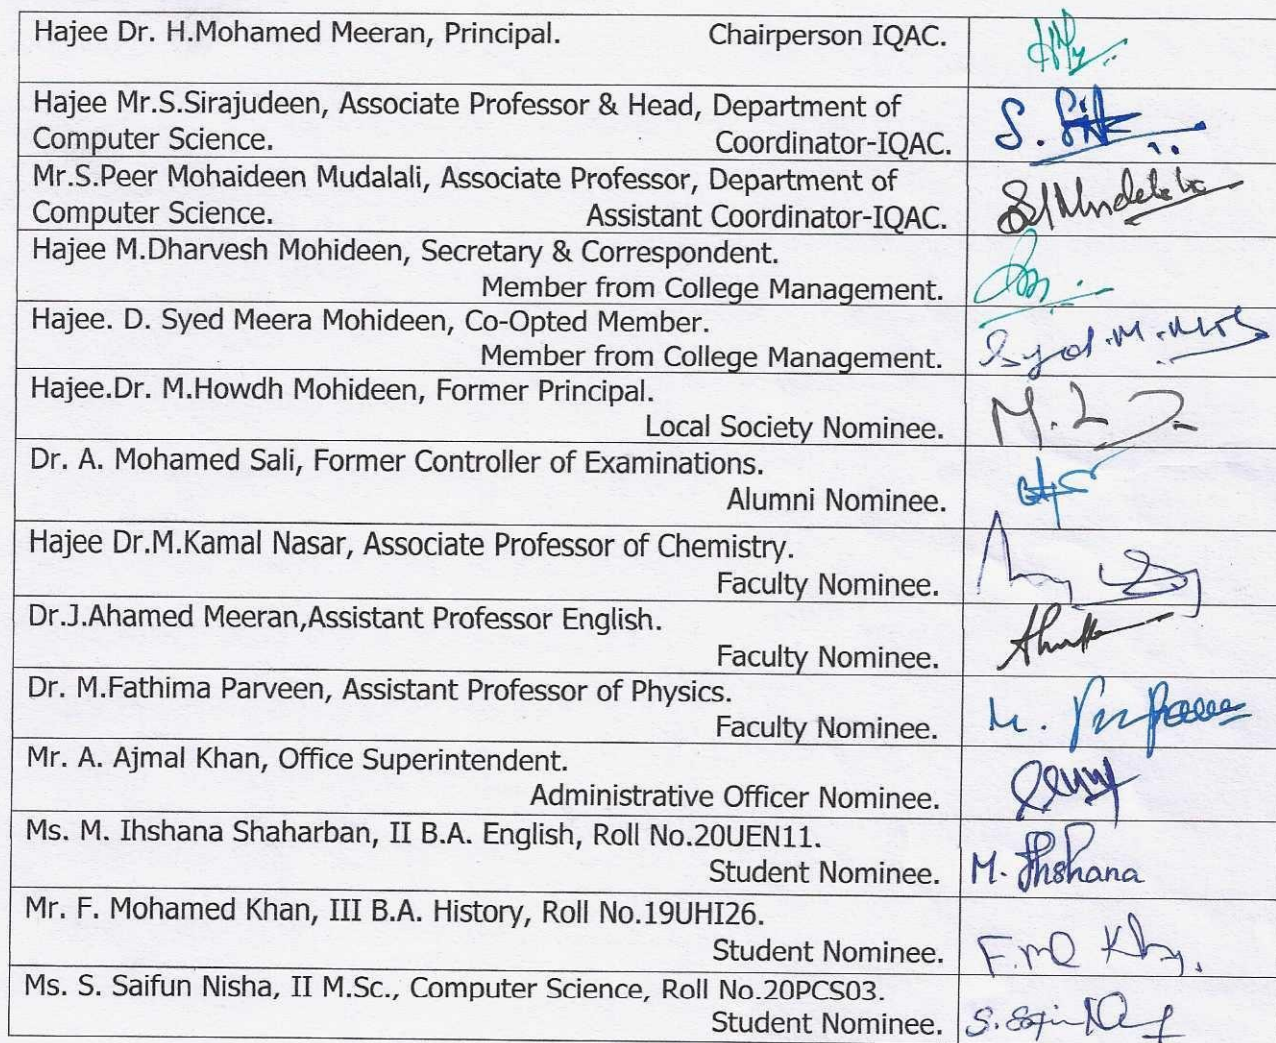 Hajee Dr. H.Mohamed Meeran, Principal. Chairperson IQAC.
Hajee Mr.S.Sirajudeen, Associate Professor & Head, Department of
Computer Science. Coordinator-IQAC.
Mr.S.Peer Mohaideen Mudalali, Associate Professor, Department of
Computer Science. Assistant Coordinator-IQAC.
Hajee M.Dharvesh Mohideen, Secretary & Correspondent.
Member from College Management.
Hajee. D. Syed Meera Mohideen, Co-Opted Member.
Member from College Management.
Hajee.Dr. M.Howdh Mohideen, Former Principal.
Local Society Nominee.
Dr. A. Mohamed Sali, Former Controller of Examinations.
Alumni Nominee.
Hajee Dr.M.Kamal Nasar, Associate Professor of Chemistry.
Faculty Nominee.
Dr.J.Ahamed Meeran,Assistant Professor English.
Faculty Nominee.
Dr. M.Fathima Parveen, Assistant Professor of Physics.
Faculty Nominee.
Mr. A. Ajmal Khan, Office Superintendent.
Administrative Officer Nominee.
Ms. M. Ihshana Shaharban, II B.A. English, Roll No.20UEN11.
Student Nominee. M. Ihshana
Mr. F. Mohamed Khan, III B.A. History, Roll No.19UHI26.
Student Nominee.
Ms. S. Saifun Nisha, II M.Sc., Computer Science, Roll No.20PCS03.
Student Nominee.